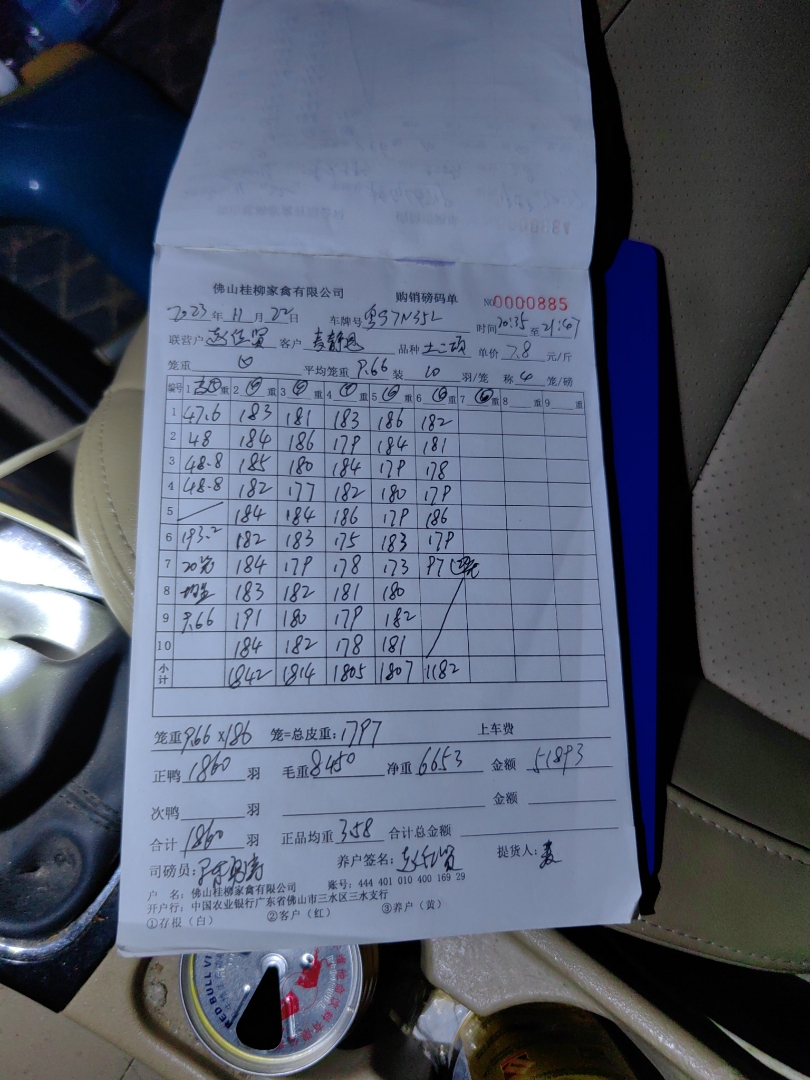 佛山桂柳家禽有限公司 购销磅码单 NO 0000885
2023年11月22日 车牌号 粤S7N35L 时间20:35至21:47
联营户 客户 麦静恩 品种 土二项 单价 7.8 元/斤
笼重 平均笼重 9.66 装 10 羽/笼 称 4 笼/磅
编号 1 重 2 重 3 重 4 重 5 重 6 重 7 重 8 重 9 重
1 47.6 183 181 183 186 182
2 48 184 186 179 184 181
3 48.8 185 180 184 179 178
4 48.8 182 177 182 180 179
5 184 184 186 179 186
6 193.2 182 183 175 183 179
7 20笼 184 179 178 173 97
8 均重 183 182 181 180
9 9.66 191 180 179 182
10 184 182 178 181
小计 1842 1814 1805 1807 1182
笼重9.66×186 笼=总皮重:1797 上车费
正鸭 1860 羽 毛重8450 净重 6653 金额 51893
次鸭 羽 金额
合计 1860 羽 正品均重 3.58 合计总金额
司磅员: 养户签名: 提货人: 麦
户 名: 佛山桂柳家禽有限公司 账号: 444 401 010 400 169 29
开户行: 中国农业银行广东省佛山市三水区三水支行
①存根(白) ②客户(红) ③养户(黄)
RED BULL VI